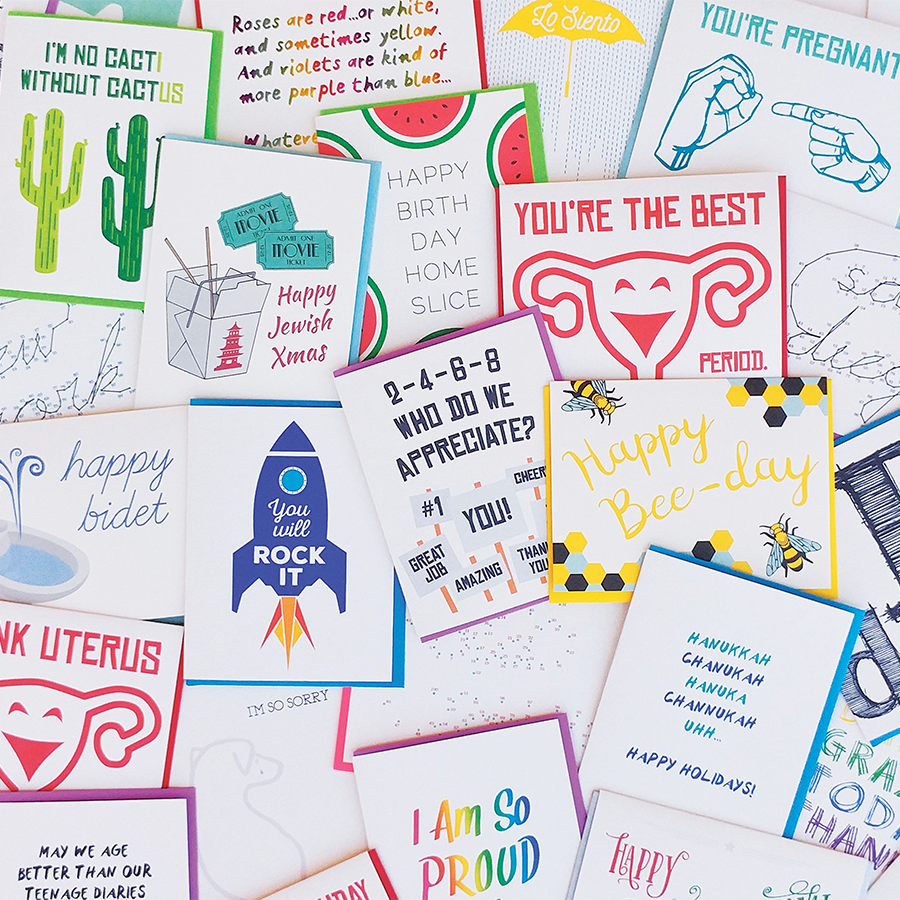 I'M NO CACTI
WITHOUT CACTUS
Roses are red...or white,
and sometimes yellow.
And violets are kind of
more purple than blue...
Whatever
Lo Siento
YOU'RE PREGNANT
ADMIT ONE
MOVIE
TICKET
ADMIT ONE
MOVIE
TICKET
Happy
Jewish
Xmas
HAPPY
BIRTH
DAY
HOME
SLICE
YOU'RE THE BEST
PERIOD.
happy
bidet
You
will
ROCK
IT
2-4-6-8
WHO DO WE
APPRECIATE?
CHEER
#1
YOU!
GREAT
JOB
AMAZING
THANK
YOU
Happy
Bee-day
NK UTERUS
I'M SO SORRY
HANUKKAH
CHANUKAH
HANUKA
CHANNUKAH
UHH...
HAPPY HOLIDAYS!
MAY WE AGE
BETTER THAN OUR
TEENAGE DIARIES
I Am So
PROUD
HAPPY